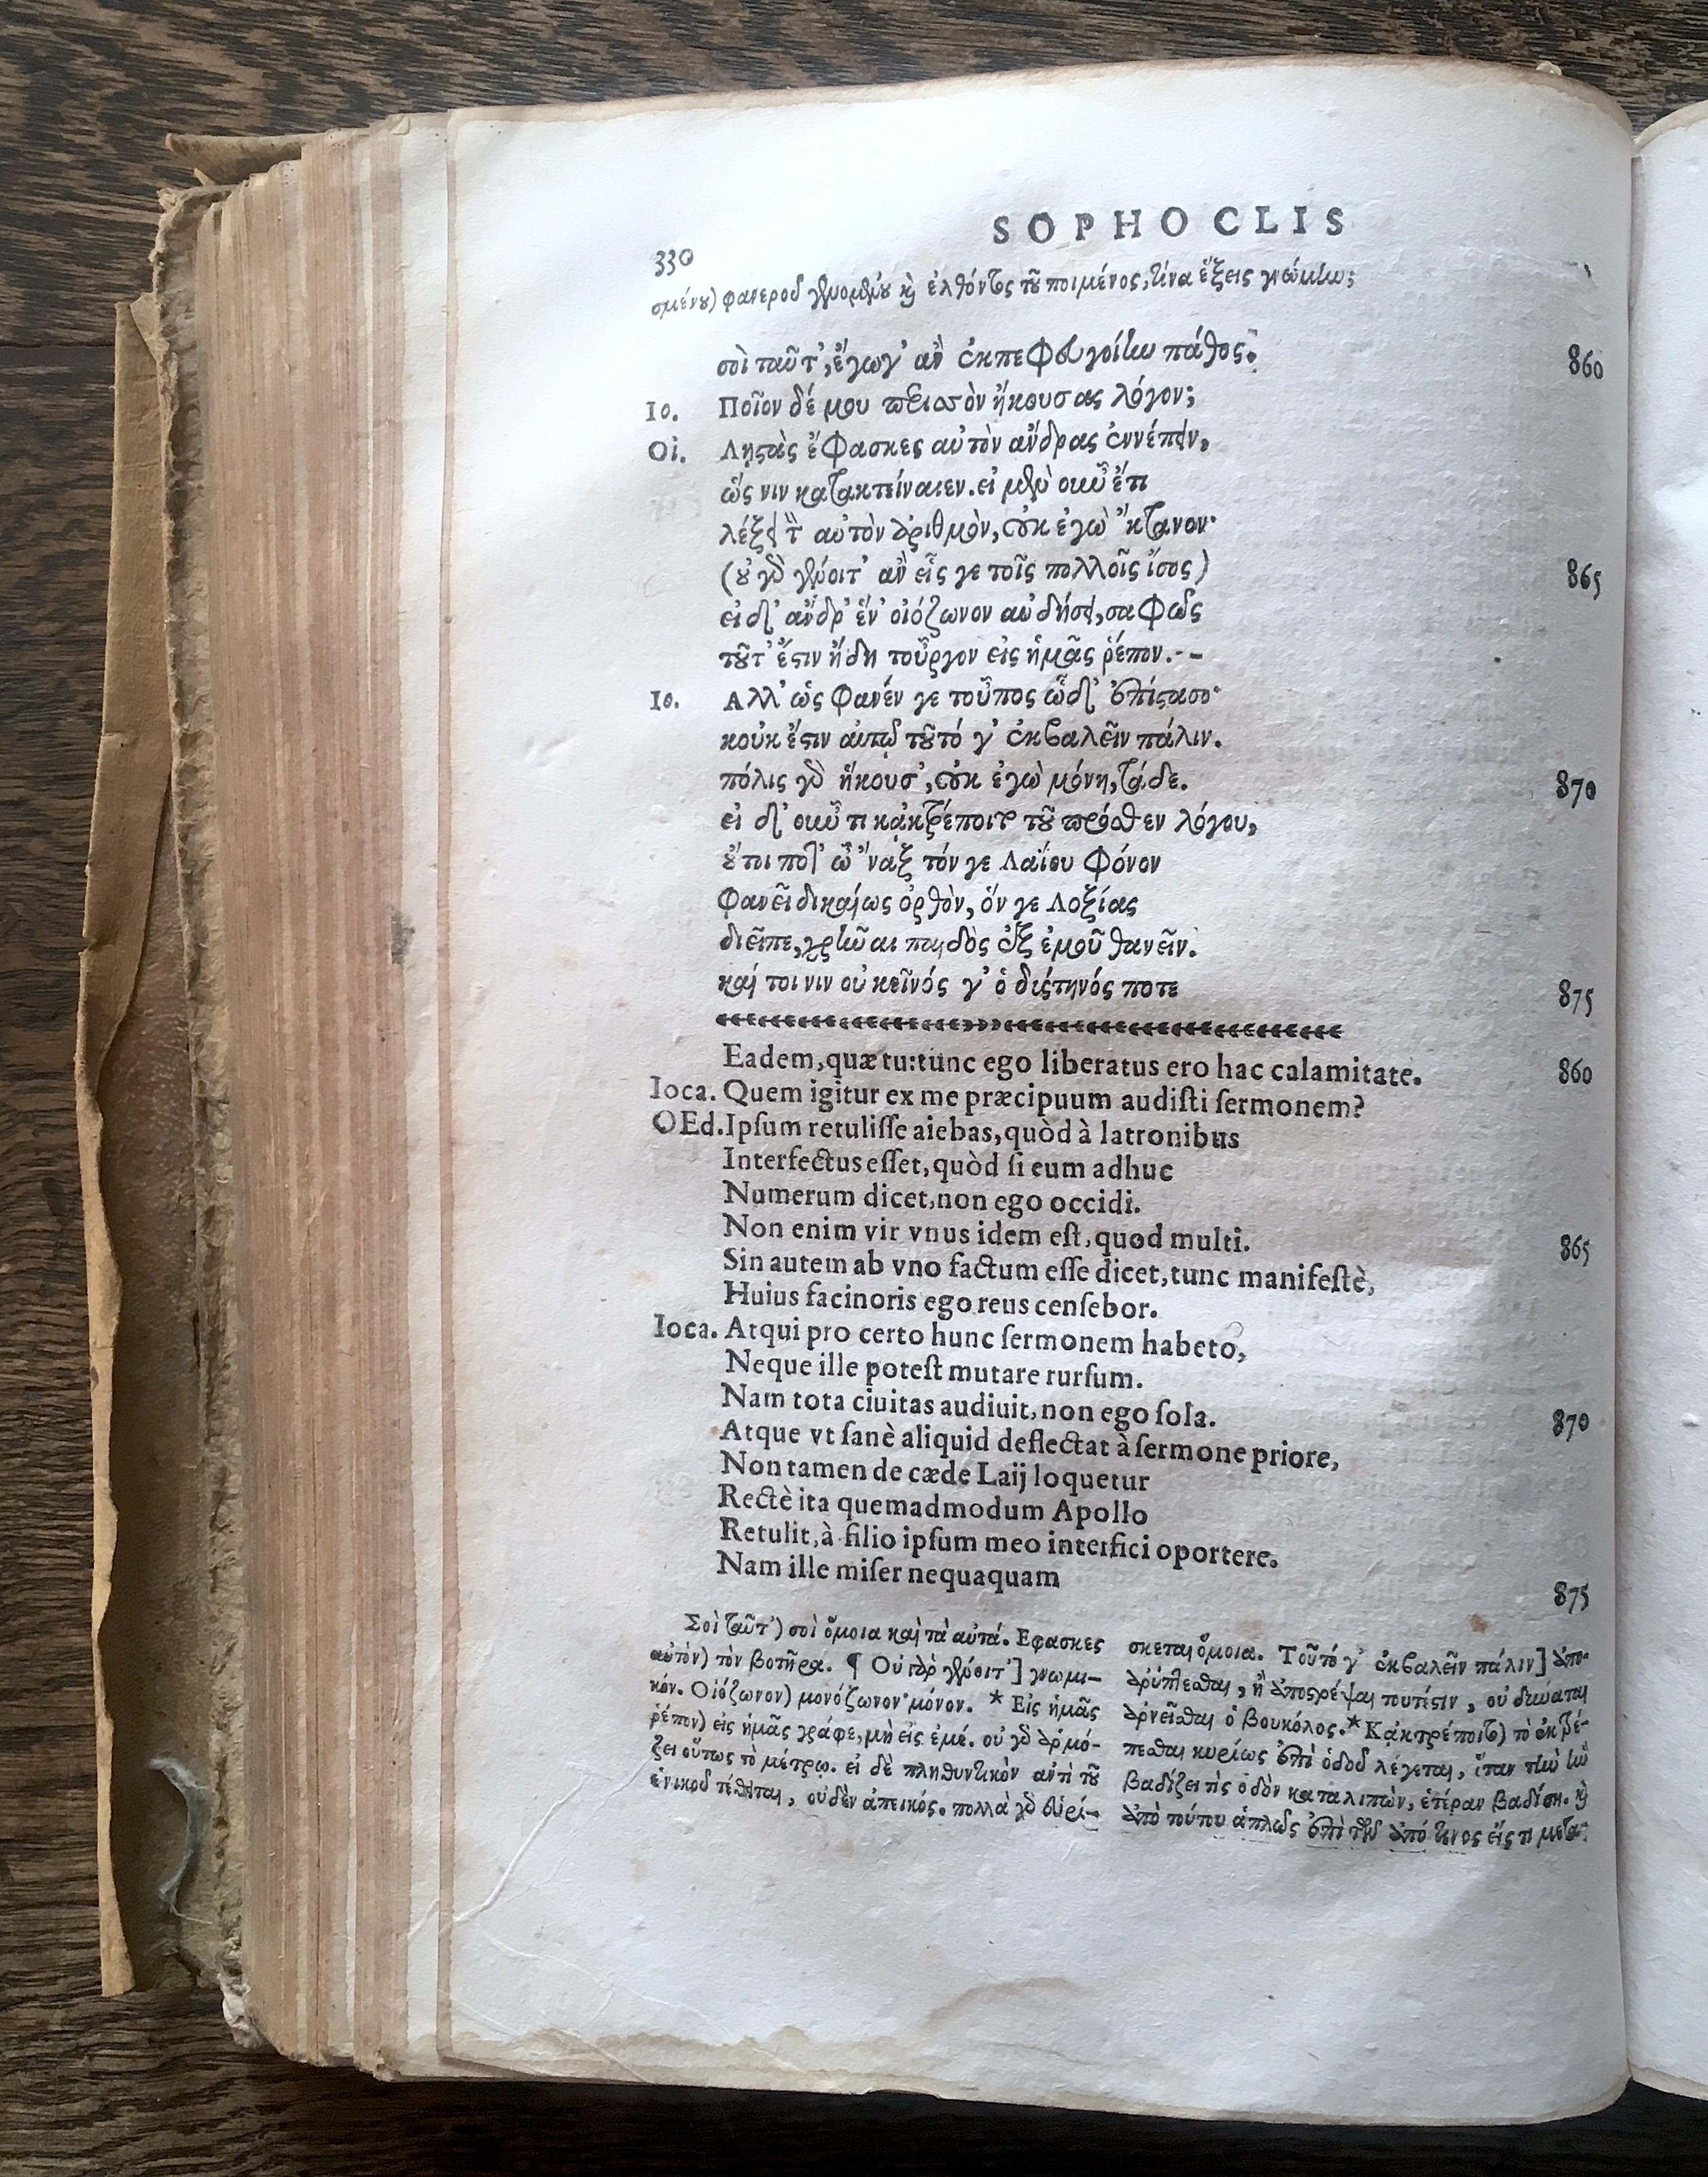 SOPHOCLIS
330
σμένου) φανεροῦ γενομένου καὶ ἐλθόντος τοῦ ποιμένος, τίνα ἕξεις γνώμην;
σοὶ ταῦτ', ἔγωγ' ἂν ἐκπεφευγοίην πάθος. 860
Ιο. Ποῖον δέ μου περισσὸν ἤκουσας λόγον;
Οἰ. Λῃστὰς ἔφασκες αὐτὸν ἄνδρας ἐννέπειν,
ὥς νιν κατακτείναιεν. εἰ μὲν οὖν ἔτι
λέξει τ αὐτὸν ἀριθμὸν, οὐκ ἐγὼ 'κτανον·
(οὐ γὰρ γένοιτ' ἂν εἷς γε τοῖς πολλοῖς ἴσος) 865
εἰ δ' ἄνδρ' ἕν' οἰόζωνον αὐδήσει, σαφῶς
τοῦτ' ἔστιν ἤδη τοὖργον εἰς ἡμᾶς ῥέπον.--
Ιο. Αλλ' ὡς φανέν γε τοὖπος ὧδ' ἐπίστασο·
κοὐκ ἔστιν αὐτῷ τοῦτό γ' ἐκβαλεῖν πάλιν.
πόλις γὰρ ἤκουσ', οὐκ ἐγὼ μόνη, τάδε. 870
εἰ δ' οὖν τι κἀκτρέποιτο τοῦ πρόσθεν λόγου,
οὔτοι ποτ' ὦ 'ναξ τόν γε Λαΐου φόνον
φανεῖ δικαίως ὀρθὸν, ὅν γε Λοξίας
διεῖπε, χρῆναι παιδὸς ἐξ ἐμοῦ θανεῖν.
καί τοι νιν οὐ κεῖνός γ' ὁ δύστηνός ποτε 875
Eadem, quæ tu: tunc ego liberatus ero hac calamitate. 860
Ioca. Quem igitur ex me præcipuum audiſti ſermonem?
OEd. Ipſum retuliſſe aiebas, quòd à latronibus
Interfectus eſſet, quòd ſi eum adhuc
Numerum dicet, non ego occidi.
Non enim vir vnus idem eſt, quod multi. 865
Sin autem ab vno factum eſſe dicet, tunc manifeſtè,
Huius facinoris ego reus cenſebor.
Ioca. Atqui pro certo hunc ſermonem habeto,
Neque ille poteſt mutare rurſum.
Nam tota ciuitas audiuit, non ego ſola. 870
Atque vt ſanè aliquid deflectat à ſermone priore,
Non tamen de cæde Laij loquetur
Rectè ita quemadmodum Apollo
Retulit, à filio ipſum meo interfici oportere.
Nam ille miſer nequaquam 875
Σοὶ ταῦτ') σοὶ ὅμοια καὶ τὰ αὐτά. Εφασκες
αὐτὸν) τὸν βοτῆρα. ¶ Οὐ γὰρ γένοιτ'] γνωμι-
κόν. Οἰόζωνον) μονόζωνον· μόνον. * Εἰς ἡμᾶς
ῥέπον) εἰς ἡμᾶς γράφε, μὴ εἰς ἐμέ. οὐ γὰρ ἁρμό-
ζει οὕτως τὸ μέτρῳ. εἰ δὲ πληθυντικὸν ἀντὶ τοῦ
ἑνικοῦ τέθειται, οὐδὲν ἀπεικός. πολλὰ γὰρ εὑρί-
σκεται ὅμοια. Τοῦτό γ' ἐκβαλεῖν πάλιν] ἀπο-
κρύπτεσθαι, ἢ ἀποστρέψαι τουτέστιν, οὐ δύναται
ἀρνεῖσθαι ὁ βουκόλος. * Κἀκτρέποιτο) τὸ ἐκτρέ-
πεσθαι κυρίως ἐπὶ ὁδοῦ λέγεται, ὅταν τὴν ἣν
βαδίζει τὶς ὁδὸν καταλιπὼν, ἑτέραν βαδίσῃ. καὶ
ἀπὸ τούτου ἁπλῶς ἐπὶ τοῦ ἀπό τινος εἴς τι μετα-